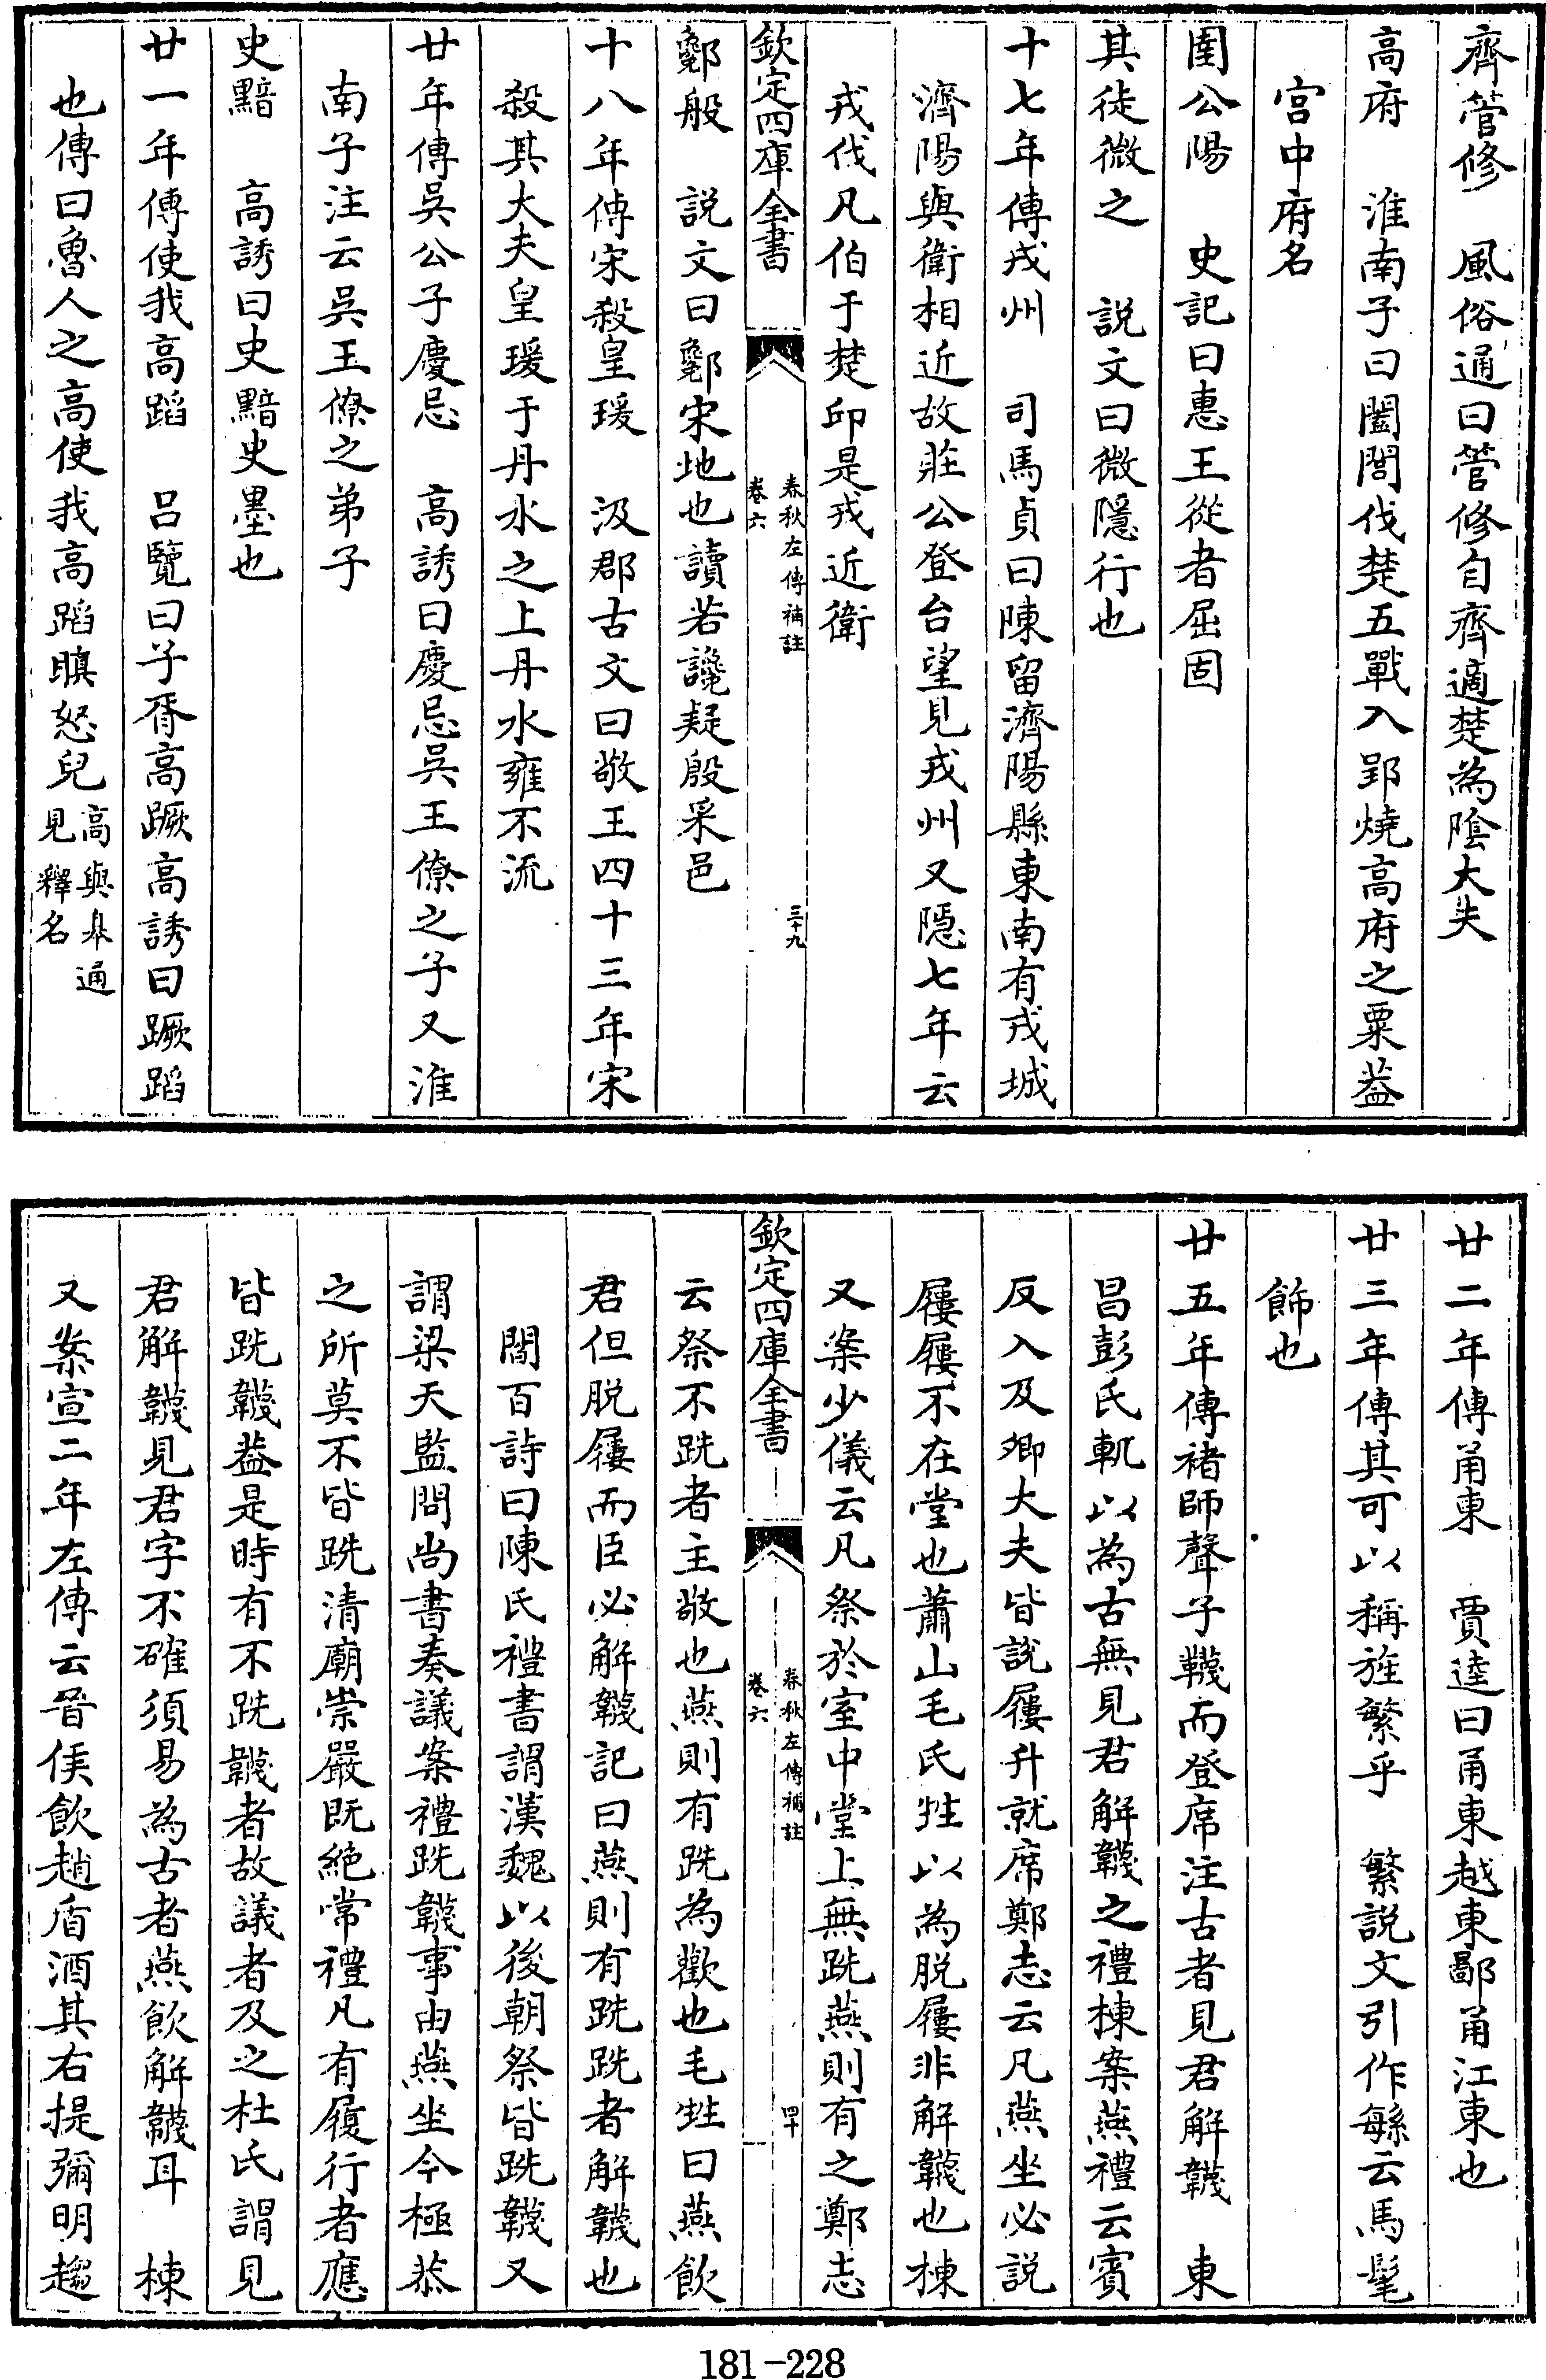 齊管修　風俗通曰管修自齊適楚為陰大夫
高府　淮南子曰闔閭伐楚五戰入郢燒高府之粟葢
宮中府名
圉公陽　史記曰惠王從者屈固
其徒微之　說文曰微隱行也
十七年傳戎州　司馬貞曰陳留濟陽縣東南有戎城
濟陽與衛相近故莊公登台望見戎州又隱七年云
戎伐凡伯于楚邱是戎近衛
欽定四庫全書　春秋左傳補註　卷六　三十九
鄤般　說文曰鄤宋地也讀若讒疑殷采邑
十八年傳宋殺皇瑗　汲郡古文曰敬王四十三年宋
殺其大夫皇瑗于丹水之上丹水雍不流
廿年傳吳公子慶忌　高誘曰慶忌吳王僚之子又淮
南子注云吳王僚之弟子
史黯　高誘曰史黯史墨也
廿一年傳使我高蹈　呂覽曰子胥高蹶高誘曰蹶蹈
也傳曰魯人之高使我高蹈瞋怒皃高與臯通見釋名
廿二年傳甬東　賈逵曰甬東越東鄙甬江東也
廿三年傳其可以稱旌繁乎　繁說文引作緐云馬髦
飾也
廿五年傳褚師聲子韈而登席注古者見君解韈　東
昌彭氏軏以為古無見君解韈之禮棟案燕禮云賓
反入及卿大夫皆說屨升就席鄭志云凡燕坐必說
屨屨不在堂也蕭山毛氏甡以為脫屨非解韈也棟
又案少儀云凡祭於室中堂上無跣燕則有之鄭志
欽定四庫全書　春秋左傳補註　卷六　四十
云祭不跣者主敬也燕則有跣為歡也毛甡曰燕飲
君但脫屨而臣必解韈記曰燕則有跣跣者解韈也
閻百詩曰陳氏禮書謂漢魏以後朝祭皆跣韈又
謂梁天監問尚書奏議案禮跣韈事由燕坐今極恭
之所莫不皆跣清廟崇嚴既絕常禮凡有履行者應
皆跣韈葢是時有不跣韈者故議者及之杜氏謂見
君解韈見君字不確須易為古者燕飲解韈耳　棟
又案宣二年左傳云晉侯飲趙盾酒其右提彌明趨
181-228